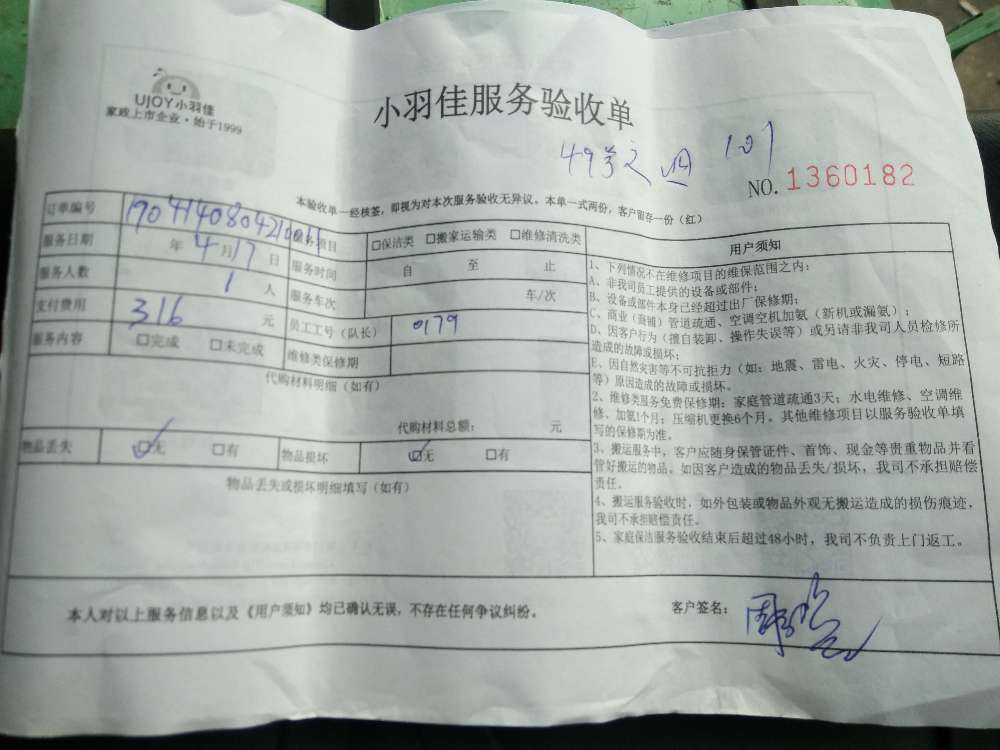 UJOY小羽佳
家政上市企业·始于1999
小羽佳服务验收单
49号之四 107
NO.1360182
本验收单一经核签，即视为对本次服务验收无异议。本单一式两份，客户留存一份（红）
订单编号
服务项目 □保洁类 □搬家运输类 □维修清洗类
服务日期 年 4月17日
服务时间 自 至 止
服务人数 1 人
服务车次 车/次
支付费用 316 元
员工工号（队长） 0179
服务内容 □完成 □未完成
维修类保修期
代购材料明细（如有）
代购材料总额： 元
物品丢失 ☑无 □有
物品损坏 ☑无 □有
物品丢失或损坏明细填写（如有）
用户须知
1、下列情况不在维修项目的维保范围之内：
A、非我司员工提供的设备或部件；
B、设备或部件本身已经超过出厂保修期；
C、商业（商铺）管道疏通、空调空机加氨（新机或漏氨）；
D、因客户行为（擅自装卸、操作失误等）或另请非我司人员检修所
造成的故障或损坏；
E、因自然灾害等不可抗拒力（如：地震、雷电、火灾、停电、短路
等）原因造成的故障或损坏。
2、维修类服务免费保修期：家庭管道疏通3天；水电维修、空调维
修、加氨1个月；压缩机更换6个月。其他维修项目以服务验收单填
写的保修期为准。
3、搬运服务中，客户应随身保管证件、首饰、现金等贵重物品并看
管好搬运的物品。如因客户造成的物品丢失/损坏，我司不承担赔偿
责任。
4、搬运服务验收时，如外包装或物品外观无搬运造成的损伤痕迹，
我司不承担赔偿责任。
5、家庭保洁服务验收结束后超过48小时，我司不负责上门返工。
本人对以上服务信息以及《用户须知》均已确认无误，不存在任何争议纠纷。
客户签名：